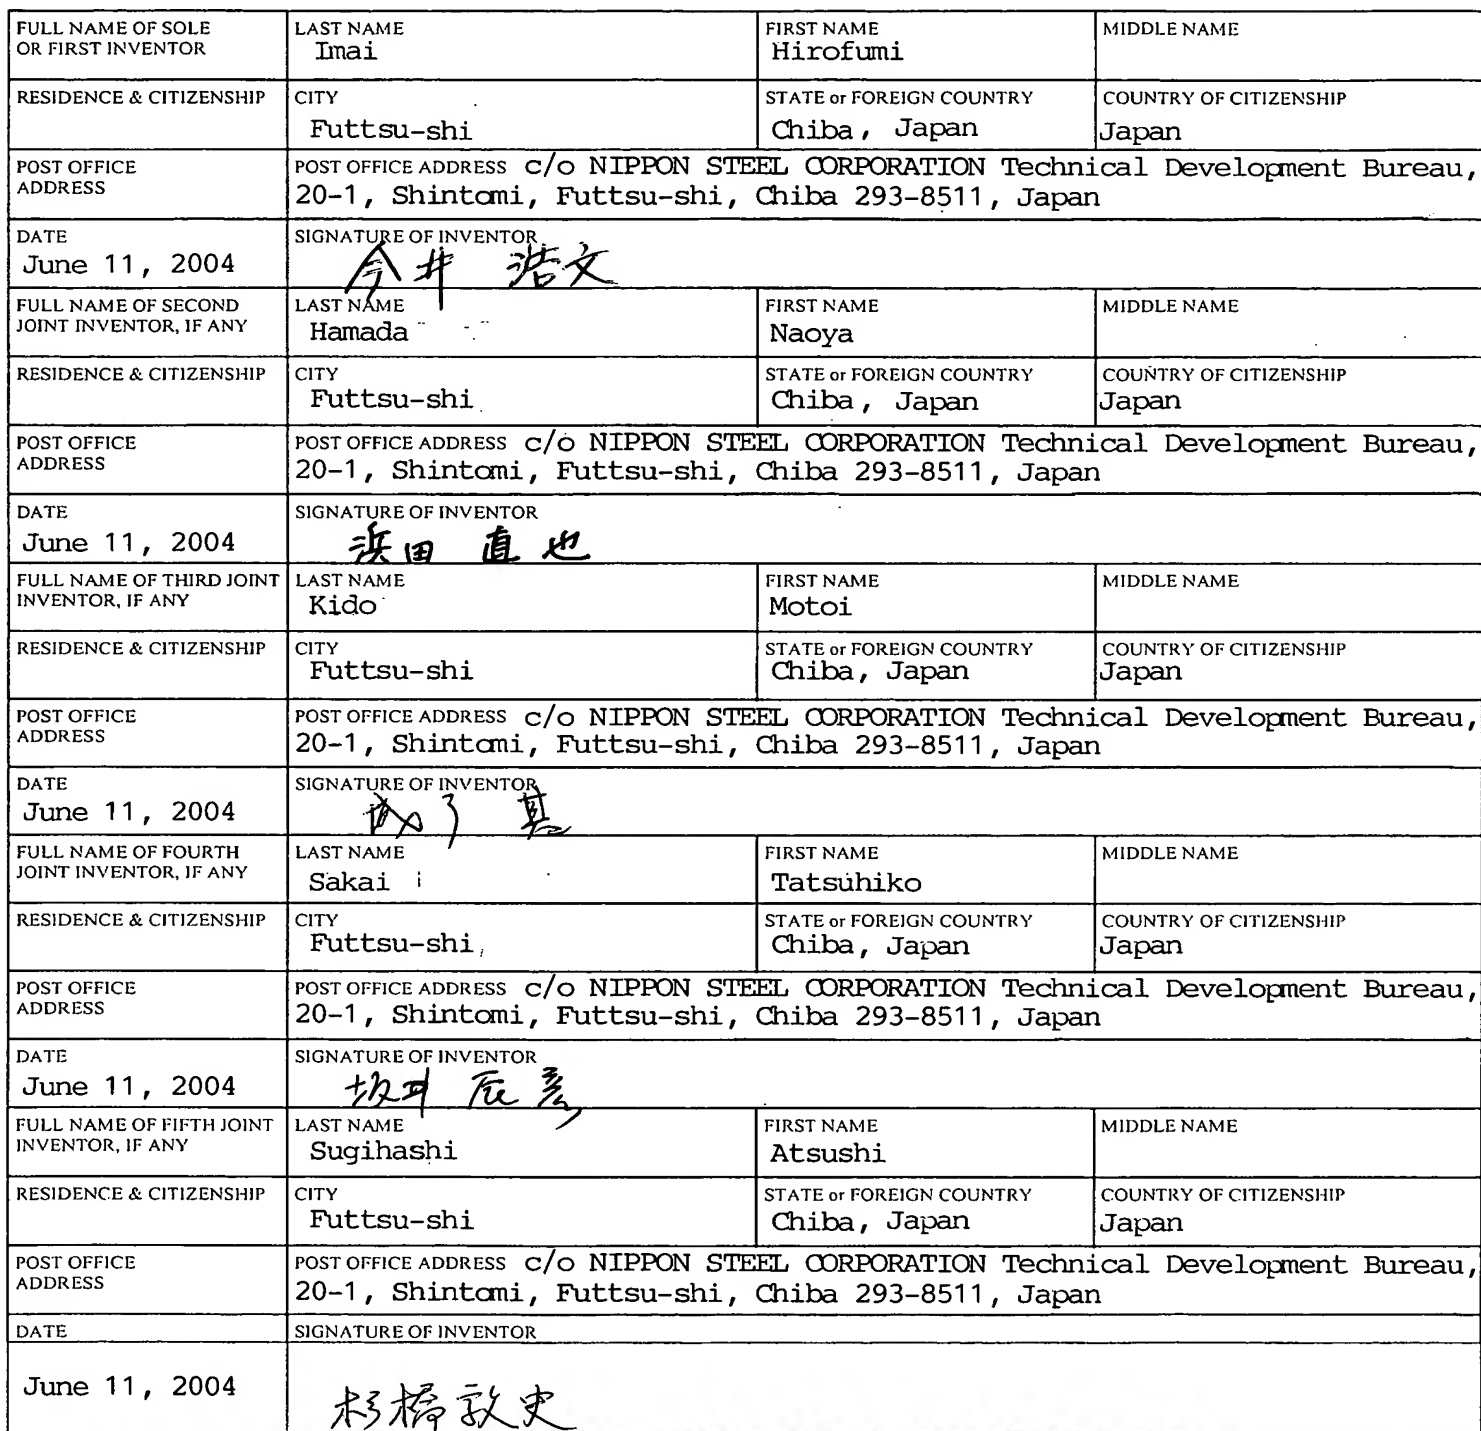 FULL NAME OF SOLE OR FIRST INVENTOR
LAST NAME
Imai
FIRST NAME
Hirofumi
MIDDLE NAME
RESIDENCE & CITIZENSHIP
CITY
Futtsu-shi
STATE or FOREIGN COUNTRY
Chiba, Japan
COUNTRY OF CITIZENSHIP
Japan
POST OFFICE ADDRESS
POST OFFICE ADDRESS c/o NIPPON STEEL CORPORATION Technical Development Bureau,
20-1, Shintomi, Futtsu-shi, Chiba 293-8511, Japan
DATE
June 11, 2004
SIGNATURE OF INVENTOR
今井 浩文
FULL NAME OF SECOND JOINT INVENTOR, IF ANY
LAST NAME
Hamada
FIRST NAME
Naoya
MIDDLE NAME
RESIDENCE & CITIZENSHIP
CITY
Futtsu-shi
STATE or FOREIGN COUNTRY
Chiba, Japan
COUNTRY OF CITIZENSHIP
Japan
POST OFFICE ADDRESS
POST OFFICE ADDRESS c/o NIPPON STEEL CORPORATION Technical Development Bureau,
20-1, Shintomi, Futtsu-shi, Chiba 293-8511, Japan
DATE
June 11, 2004
SIGNATURE OF INVENTOR
浜田 直也
FULL NAME OF THIRD JOINT INVENTOR, IF ANY
LAST NAME
Kido
FIRST NAME
Motoi
MIDDLE NAME
RESIDENCE & CITIZENSHIP
CITY
Futtsu-shi
STATE or FOREIGN COUNTRY
Chiba, Japan
COUNTRY OF CITIZENSHIP
Japan
POST OFFICE ADDRESS
POST OFFICE ADDRESS c/o NIPPON STEEL CORPORATION Technical Development Bureau,
20-1, Shintomi, Futtsu-shi, Chiba 293-8511, Japan
DATE
June 11, 2004
SIGNATURE OF INVENTOR
FULL NAME OF FOURTH JOINT INVENTOR, IF ANY
LAST NAME
Sakai
FIRST NAME
Tatsuhiko
MIDDLE NAME
RESIDENCE & CITIZENSHIP
CITY
Futtsu-shi
STATE or FOREIGN COUNTRY
Chiba, Japan
COUNTRY OF CITIZENSHIP
Japan
POST OFFICE ADDRESS
POST OFFICE ADDRESS c/o NIPPON STEEL CORPORATION Technical Development Bureau,
20-1, Shintomi, Futtsu-shi, Chiba 293-8511, Japan
DATE
June 11, 2004
SIGNATURE OF INVENTOR
坂井 辰彦
FULL NAME OF FIFTH JOINT INVENTOR, IF ANY
LAST NAME
Sugihashi
FIRST NAME
Atsushi
MIDDLE NAME
RESIDENCE & CITIZENSHIP
CITY
Futtsu-shi
STATE or FOREIGN COUNTRY
Chiba, Japan
COUNTRY OF CITIZENSHIP
Japan
POST OFFICE ADDRESS
POST OFFICE ADDRESS c/o NIPPON STEEL CORPORATION Technical Development Bureau,
20-1, Shintomi, Futtsu-shi, Chiba 293-8511, Japan
DATE
June 11, 2004
SIGNATURE OF INVENTOR
杉橋敦史